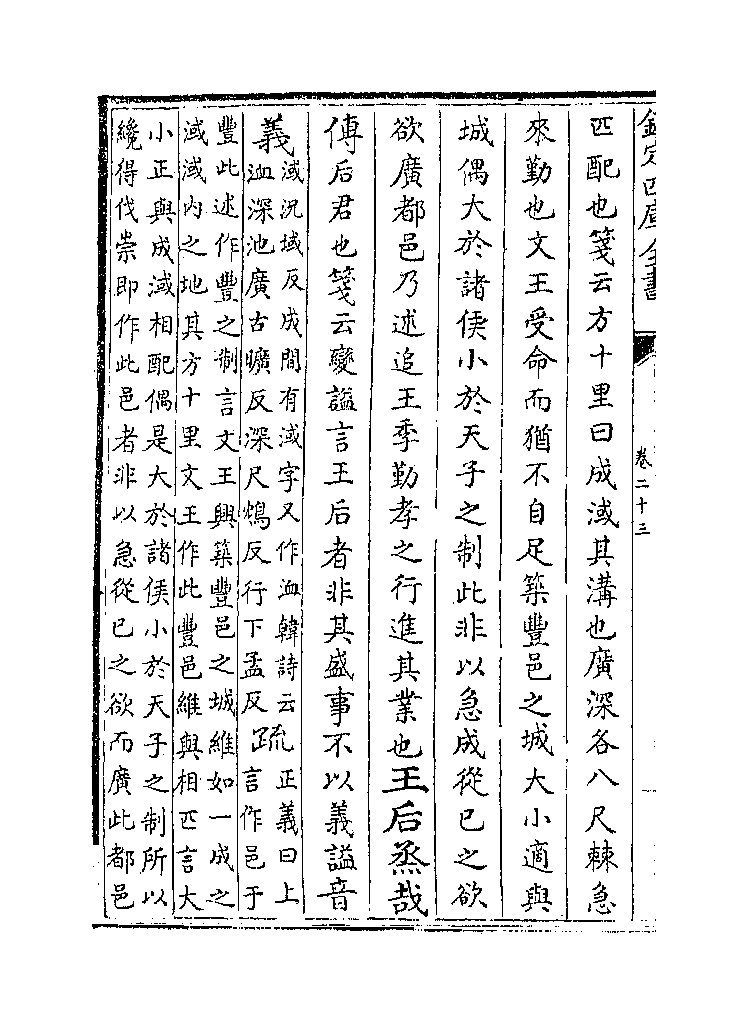 欽定四庫全書
卷二十三
匹配也箋云方十里曰成淢其溝也廣深各八尺棘急
來勤也文王受命而猶不自足築豐邑之城大小適與
城偶大於諸侯小於天子之制此非以急成從已之欲
欲廣都邑乃述追王季勤孝之行進其業也王后烝哉
傳后君也箋云變謚言王后者非其盛事不以義謚音
義淢況域反成間有淢字又作洫韓詩云
洫深池廣古曠反深尺鴆反行下孟反疏正義曰上
言作邑于
豐此述作豐之制言文王興築豐邑之城維如一成之
淢淢内之地其方十里文王作此豐邑維與相匹言大
小正與成淢相配偶是大於諸侯小於天子之制所以
纔得伐崇即作此邑者非以急從已之欲而廣此都邑